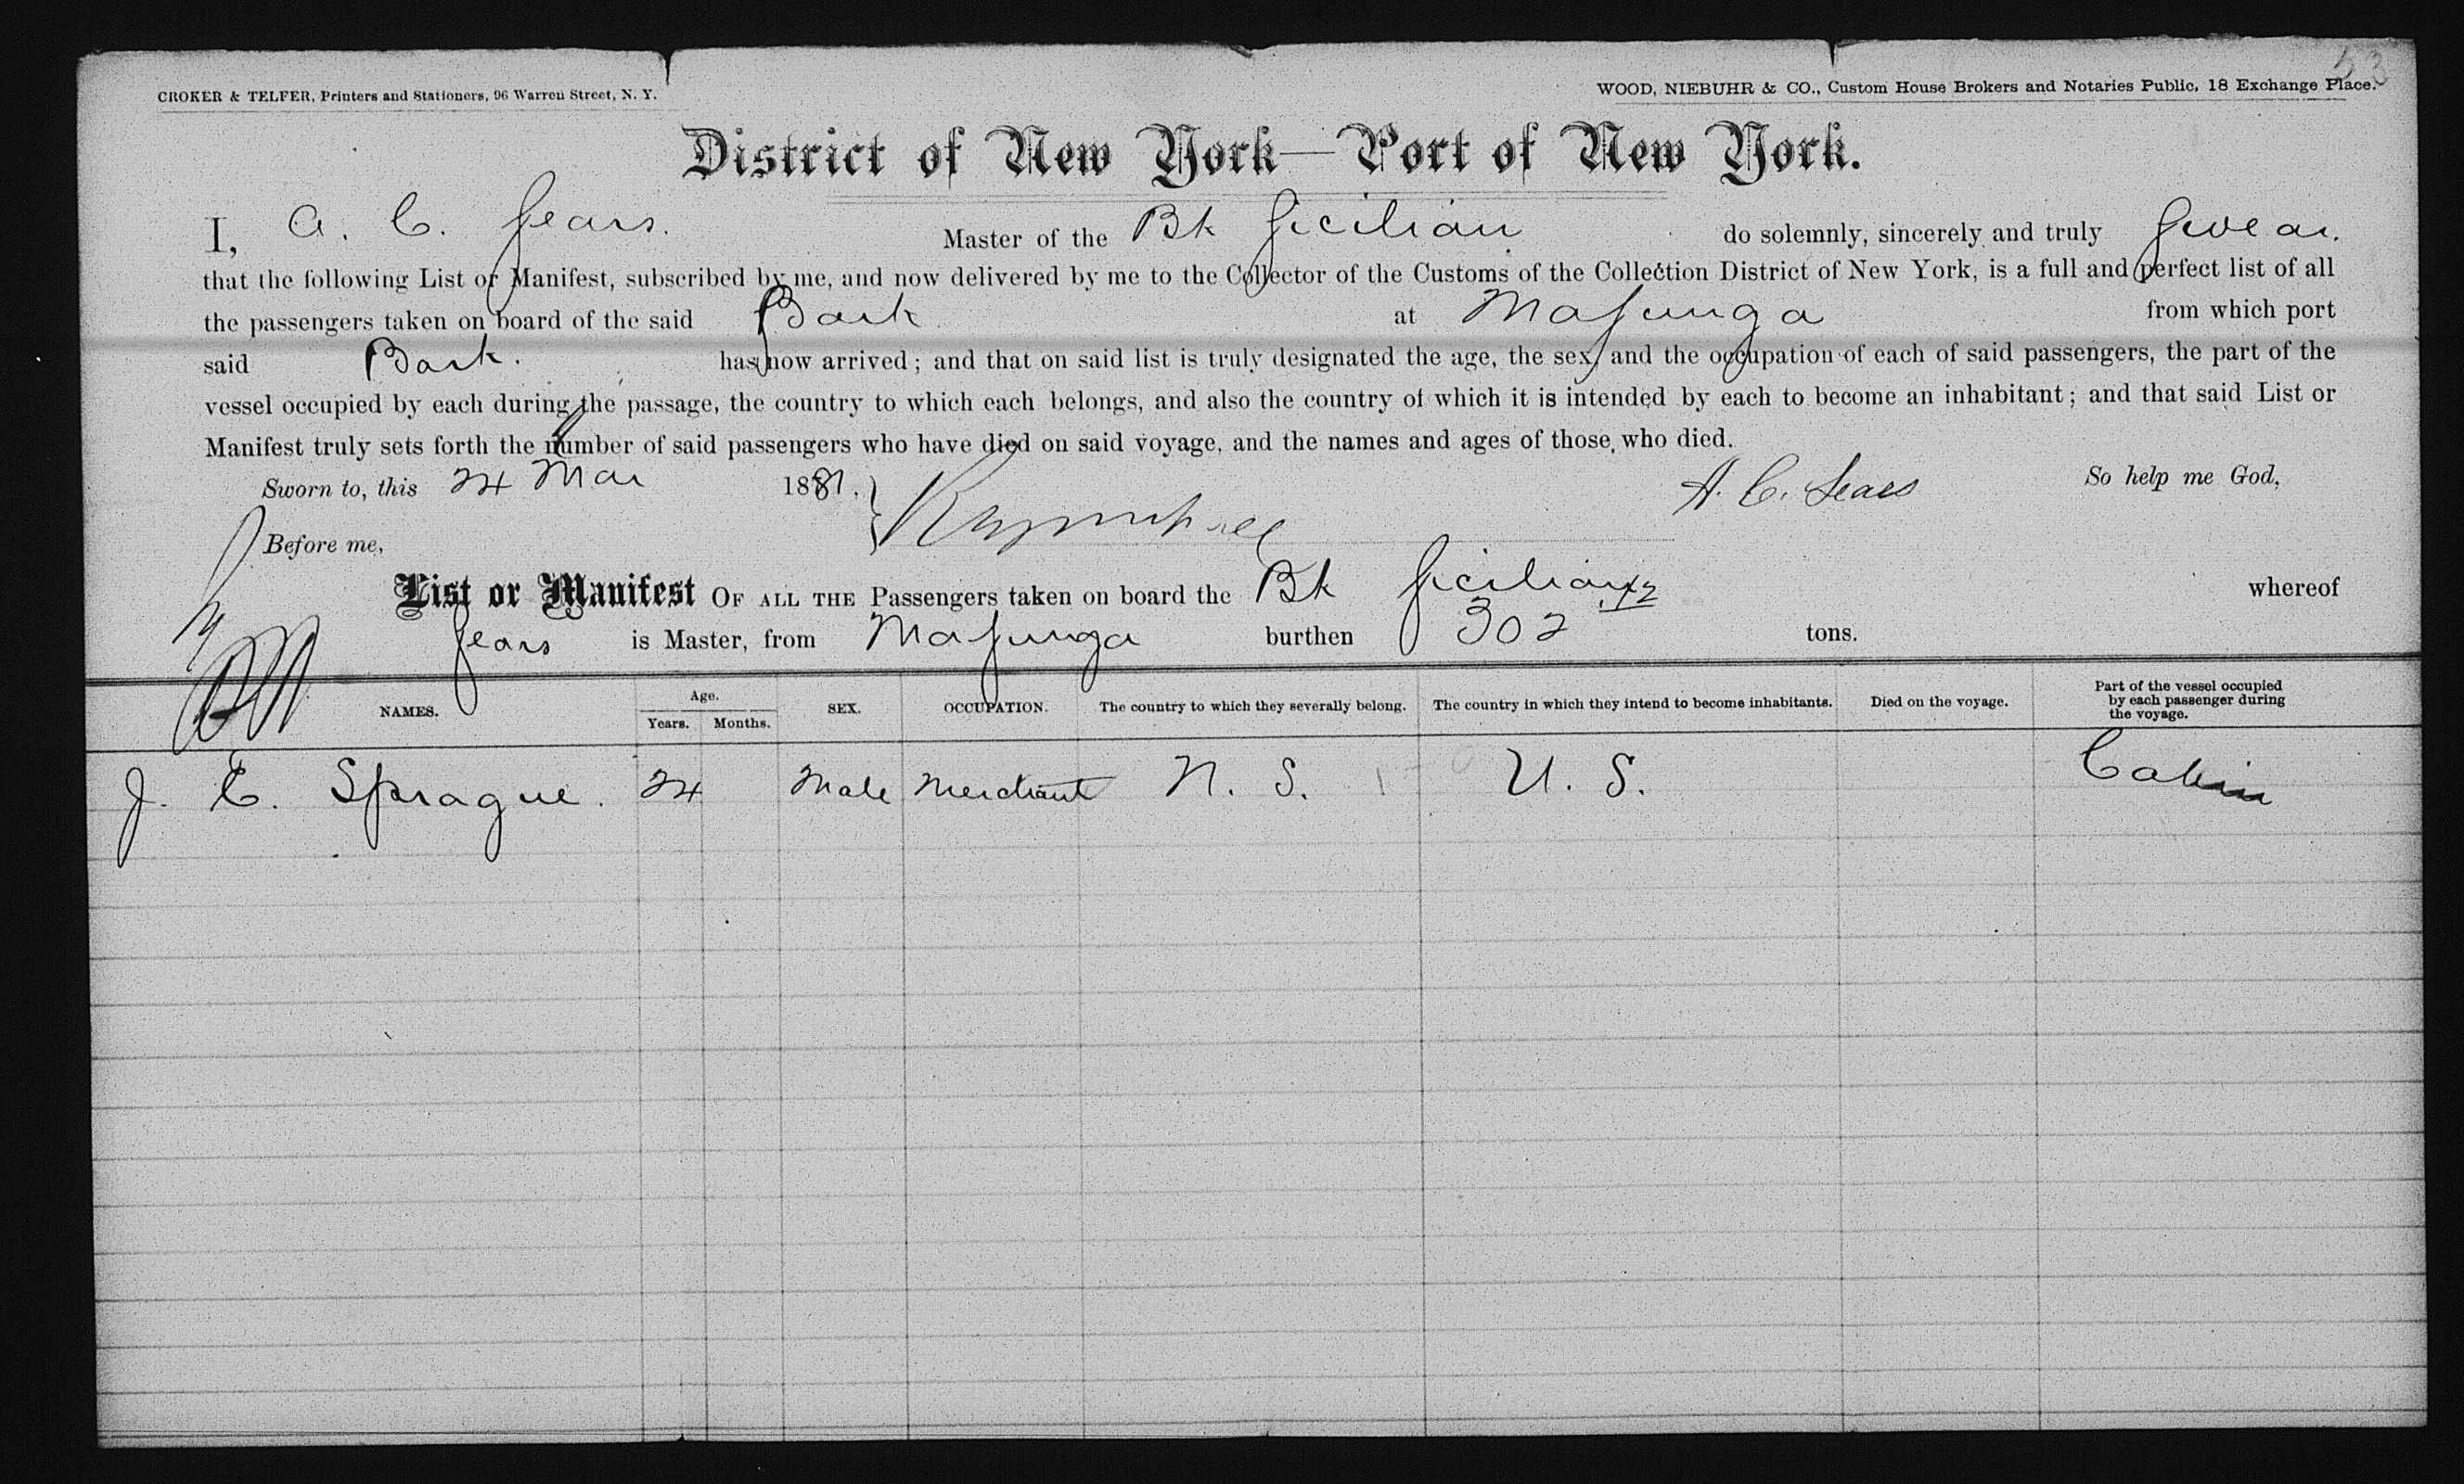 53
CROKER & TELFER, Printers and Stationers, 96 Warren Street, N. Y.
WOOD, NIEBUHR & CO., Custom House Brokers and Notaries Public, 18 Exchange Place.
District of New York—Port of New York.
I, A. C. Sears. Master of the Bk Sicilian do solemnly, sincerely and truly Swear.
that the following List or Manifest, subscribed by me, and now delivered by me to the Collector of the Customs of the Collection District of New York, is a full and perfect list of all
the passengers taken on board of the said Bark at Majunga from which port
said Bark. has now arrived; and that on said list is truly designated the age, the sex, and the occupation of each of said passengers, the part of the
vessel occupied by each during the passage, the country to which each belongs, and also the country of which it is intended by each to become an inhabitant; and that said List or
Manifest truly sets forth the number of said passengers who have died on said voyage, and the names and ages of those who died.
Sworn to, this 24 Mar 1887. A. C. Sears So help me God,
Before me,
List or Manifest OF ALL THE Passengers taken on board the Bk Sicilian whereof
Sears is Master, from Majunga burthen 302 42 tons.
NAMES. Age. Years. Months. SEX. OCCUPATION. The country to which they severally belong. The country in which they intend to become inhabitants. Died on the voyage. Part of the vessel occupied by each passenger during the voyage.
J. C. Sprague. 24 Male Merchant N. S. U. S. Cabin